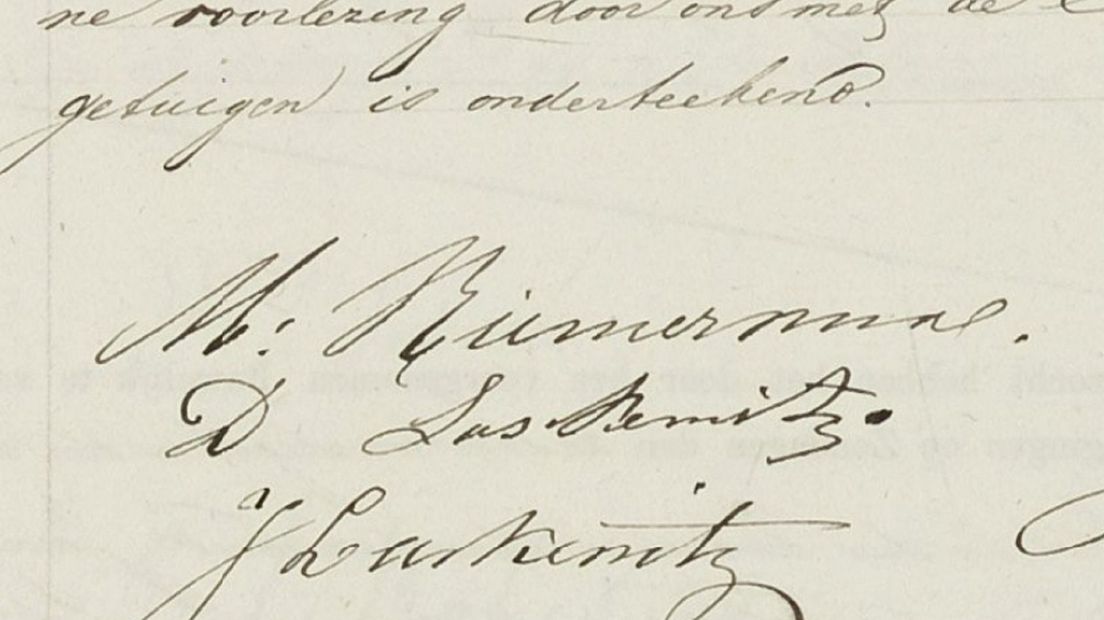 ne voorlezing door ons met de
getuigen is onderteekend.
M. Riemersma.
D Laskewitz.
J Laskewitz